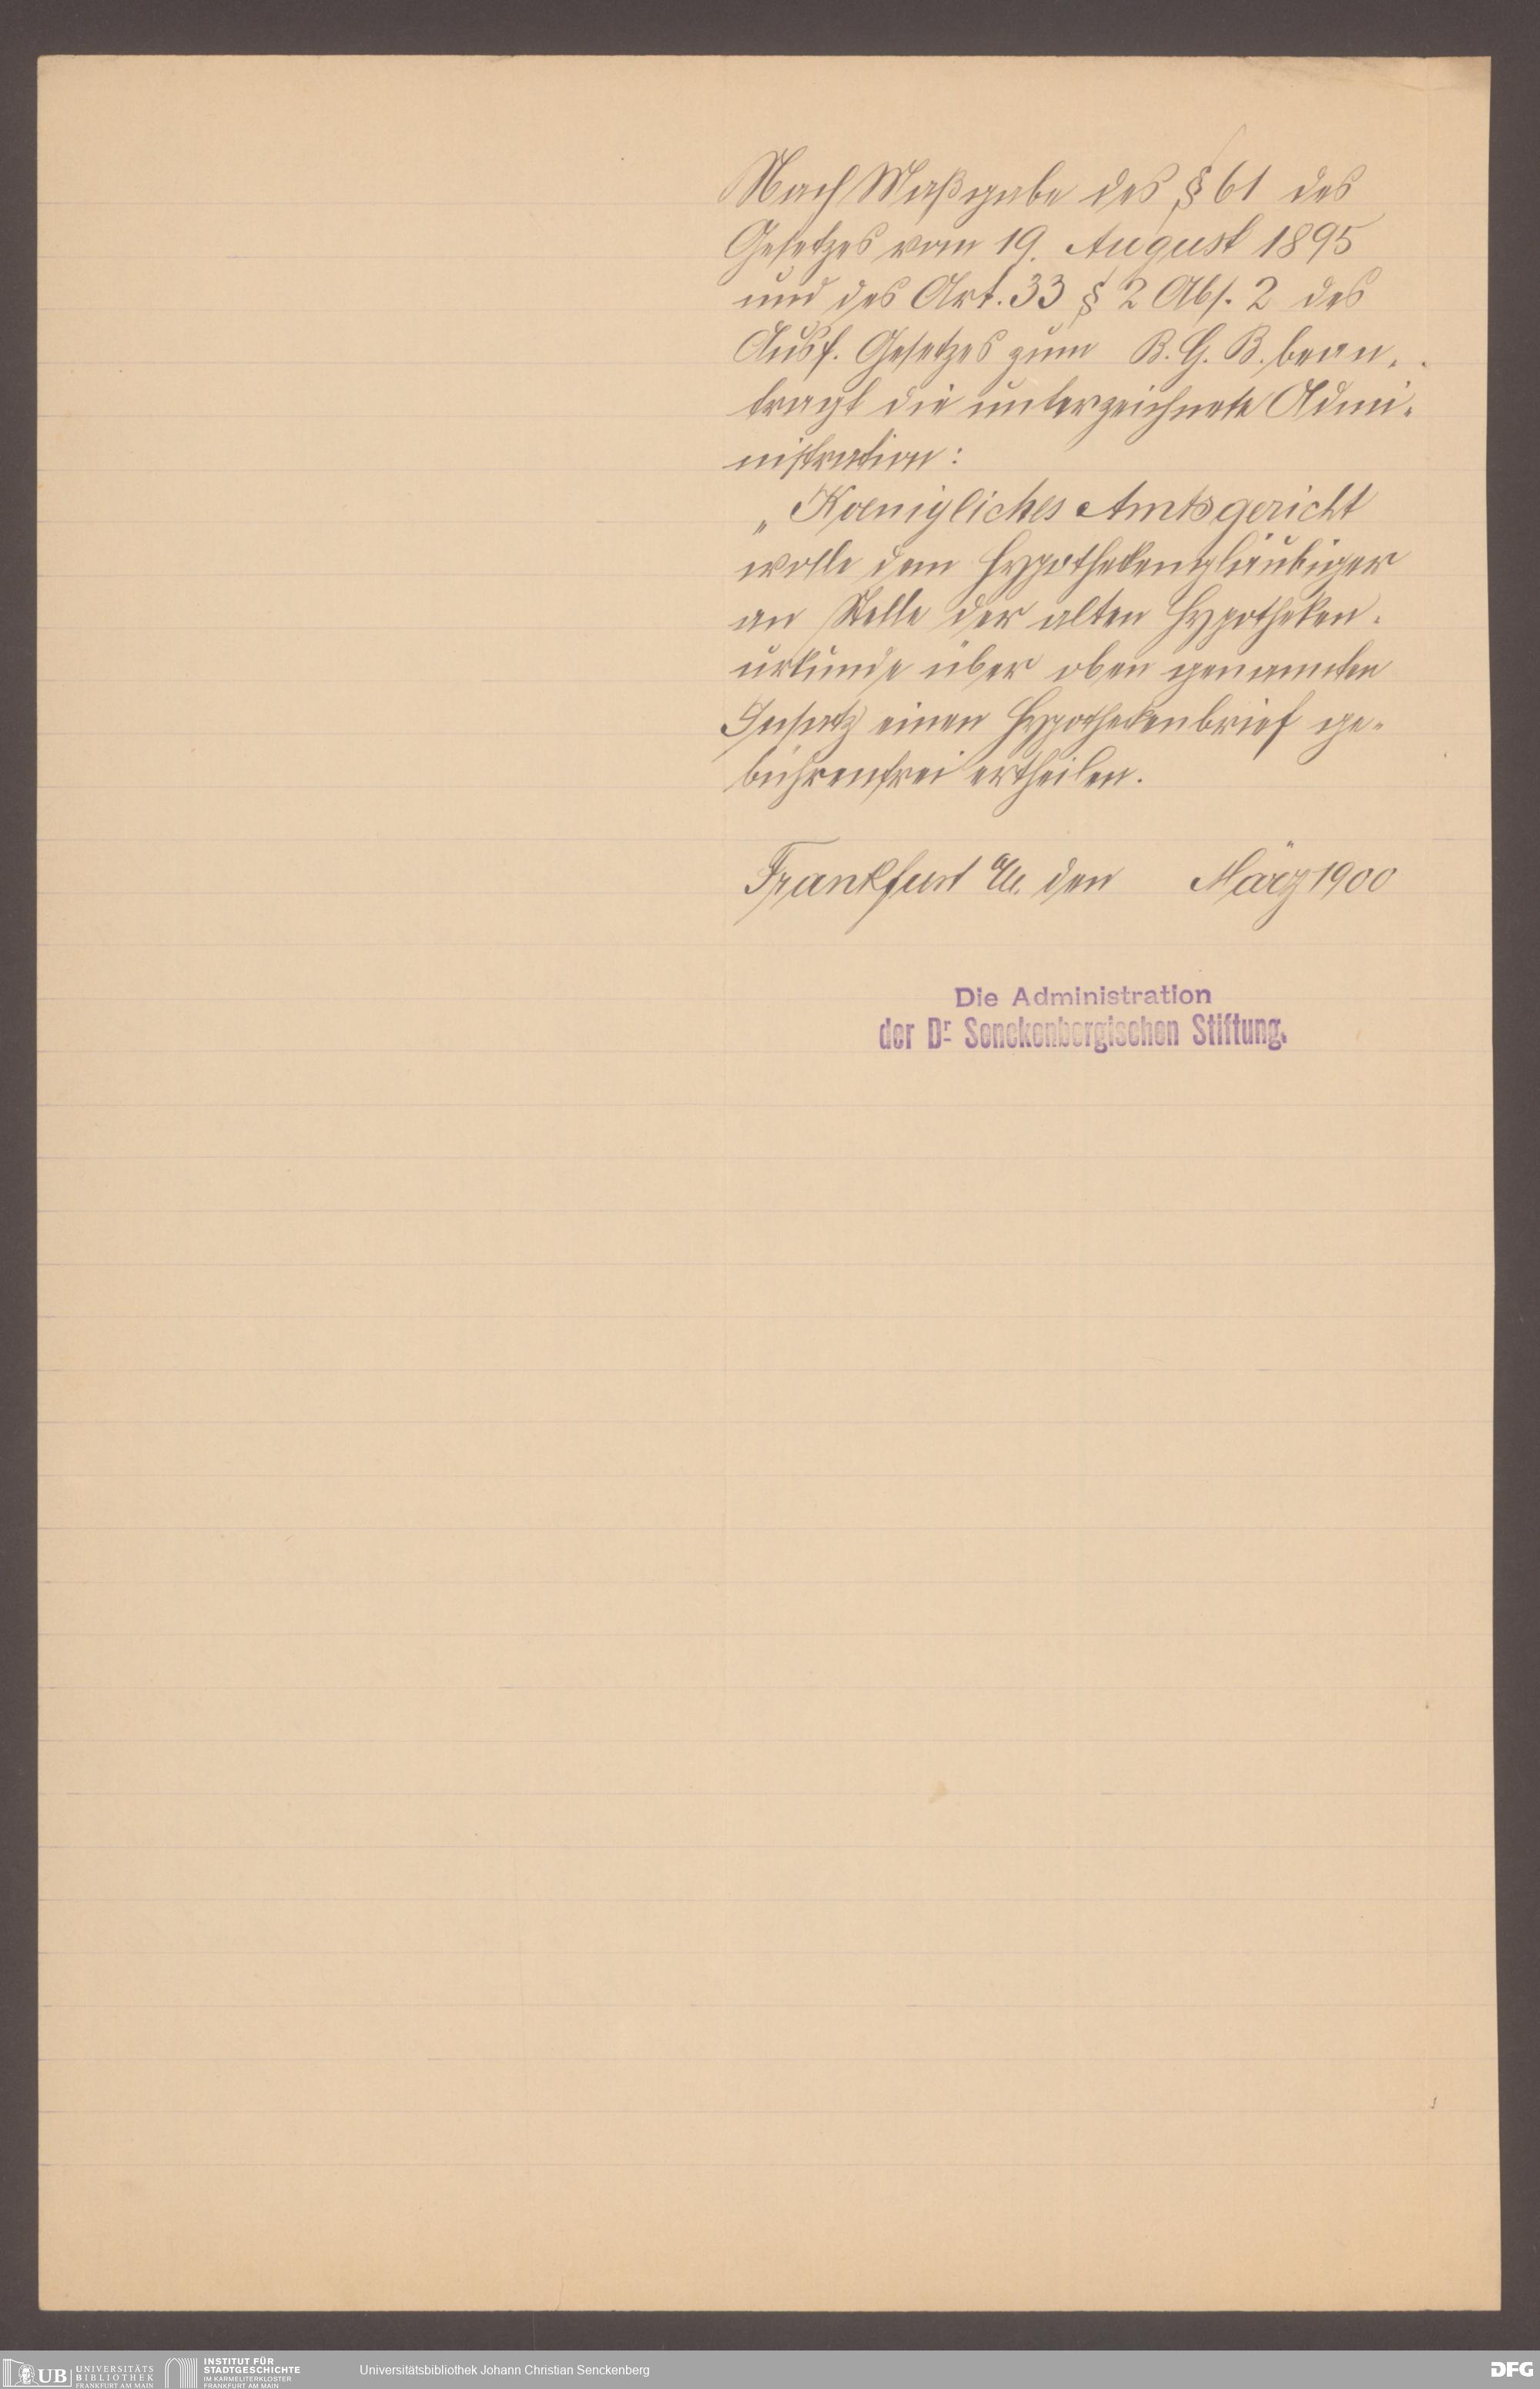 Nach Maßgabe des § 61 des
Gesetzes vom 19. August 1895
und des Art. 33 § 2 Abs. 2 des
Ausf. Gesetzes zum B. G. B. bean-
tragt die unterzeichnete Admi-
nistration:
„Koenigliches Amtsgericht
wolle dem Hypothekengläubiger
an Stelle der alten Hypotheken-
urkunde über oben genannten
Insatz einen Hypothekenbrief ge-
bührenfrei ertheilen.
Frankfurt a/M. den März 1900
Die Administration
der Dr. Senckenbergischen Stiftung.
UB UNIVERSITÄTS
BIBLIOTHEK
FRANKFURT AM MAIN
INSTITUT FÜR
STADTGESCHICHTE
IM KARMELITERKLOSTER
FRANKFURT AM MAIN
Universitätsbibliothek Johann Christian Senckenberg
DFG